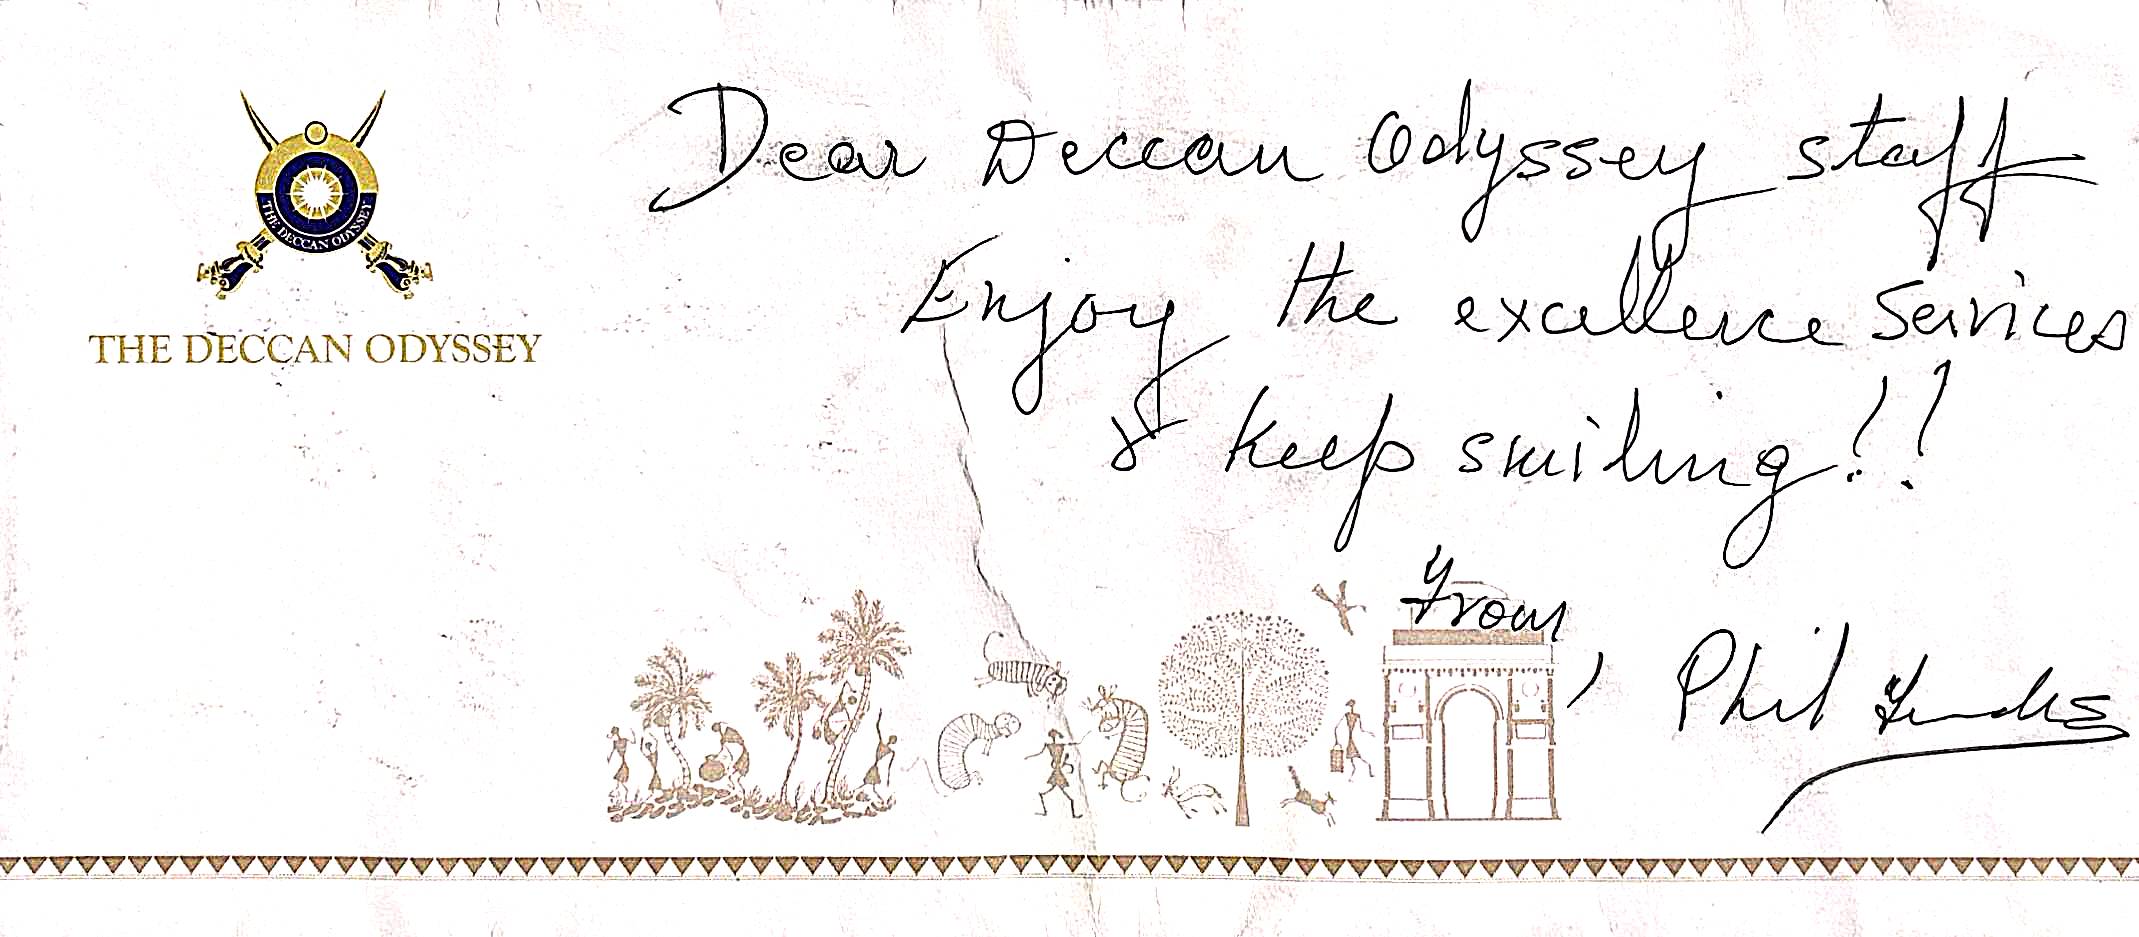 THE DECCAN ODYSSEY
THE DECCAN ODYSSEY
Dear Deccan Odyssey staff
Enjoy the excellence services
& keep smiling!!
From,
Phil